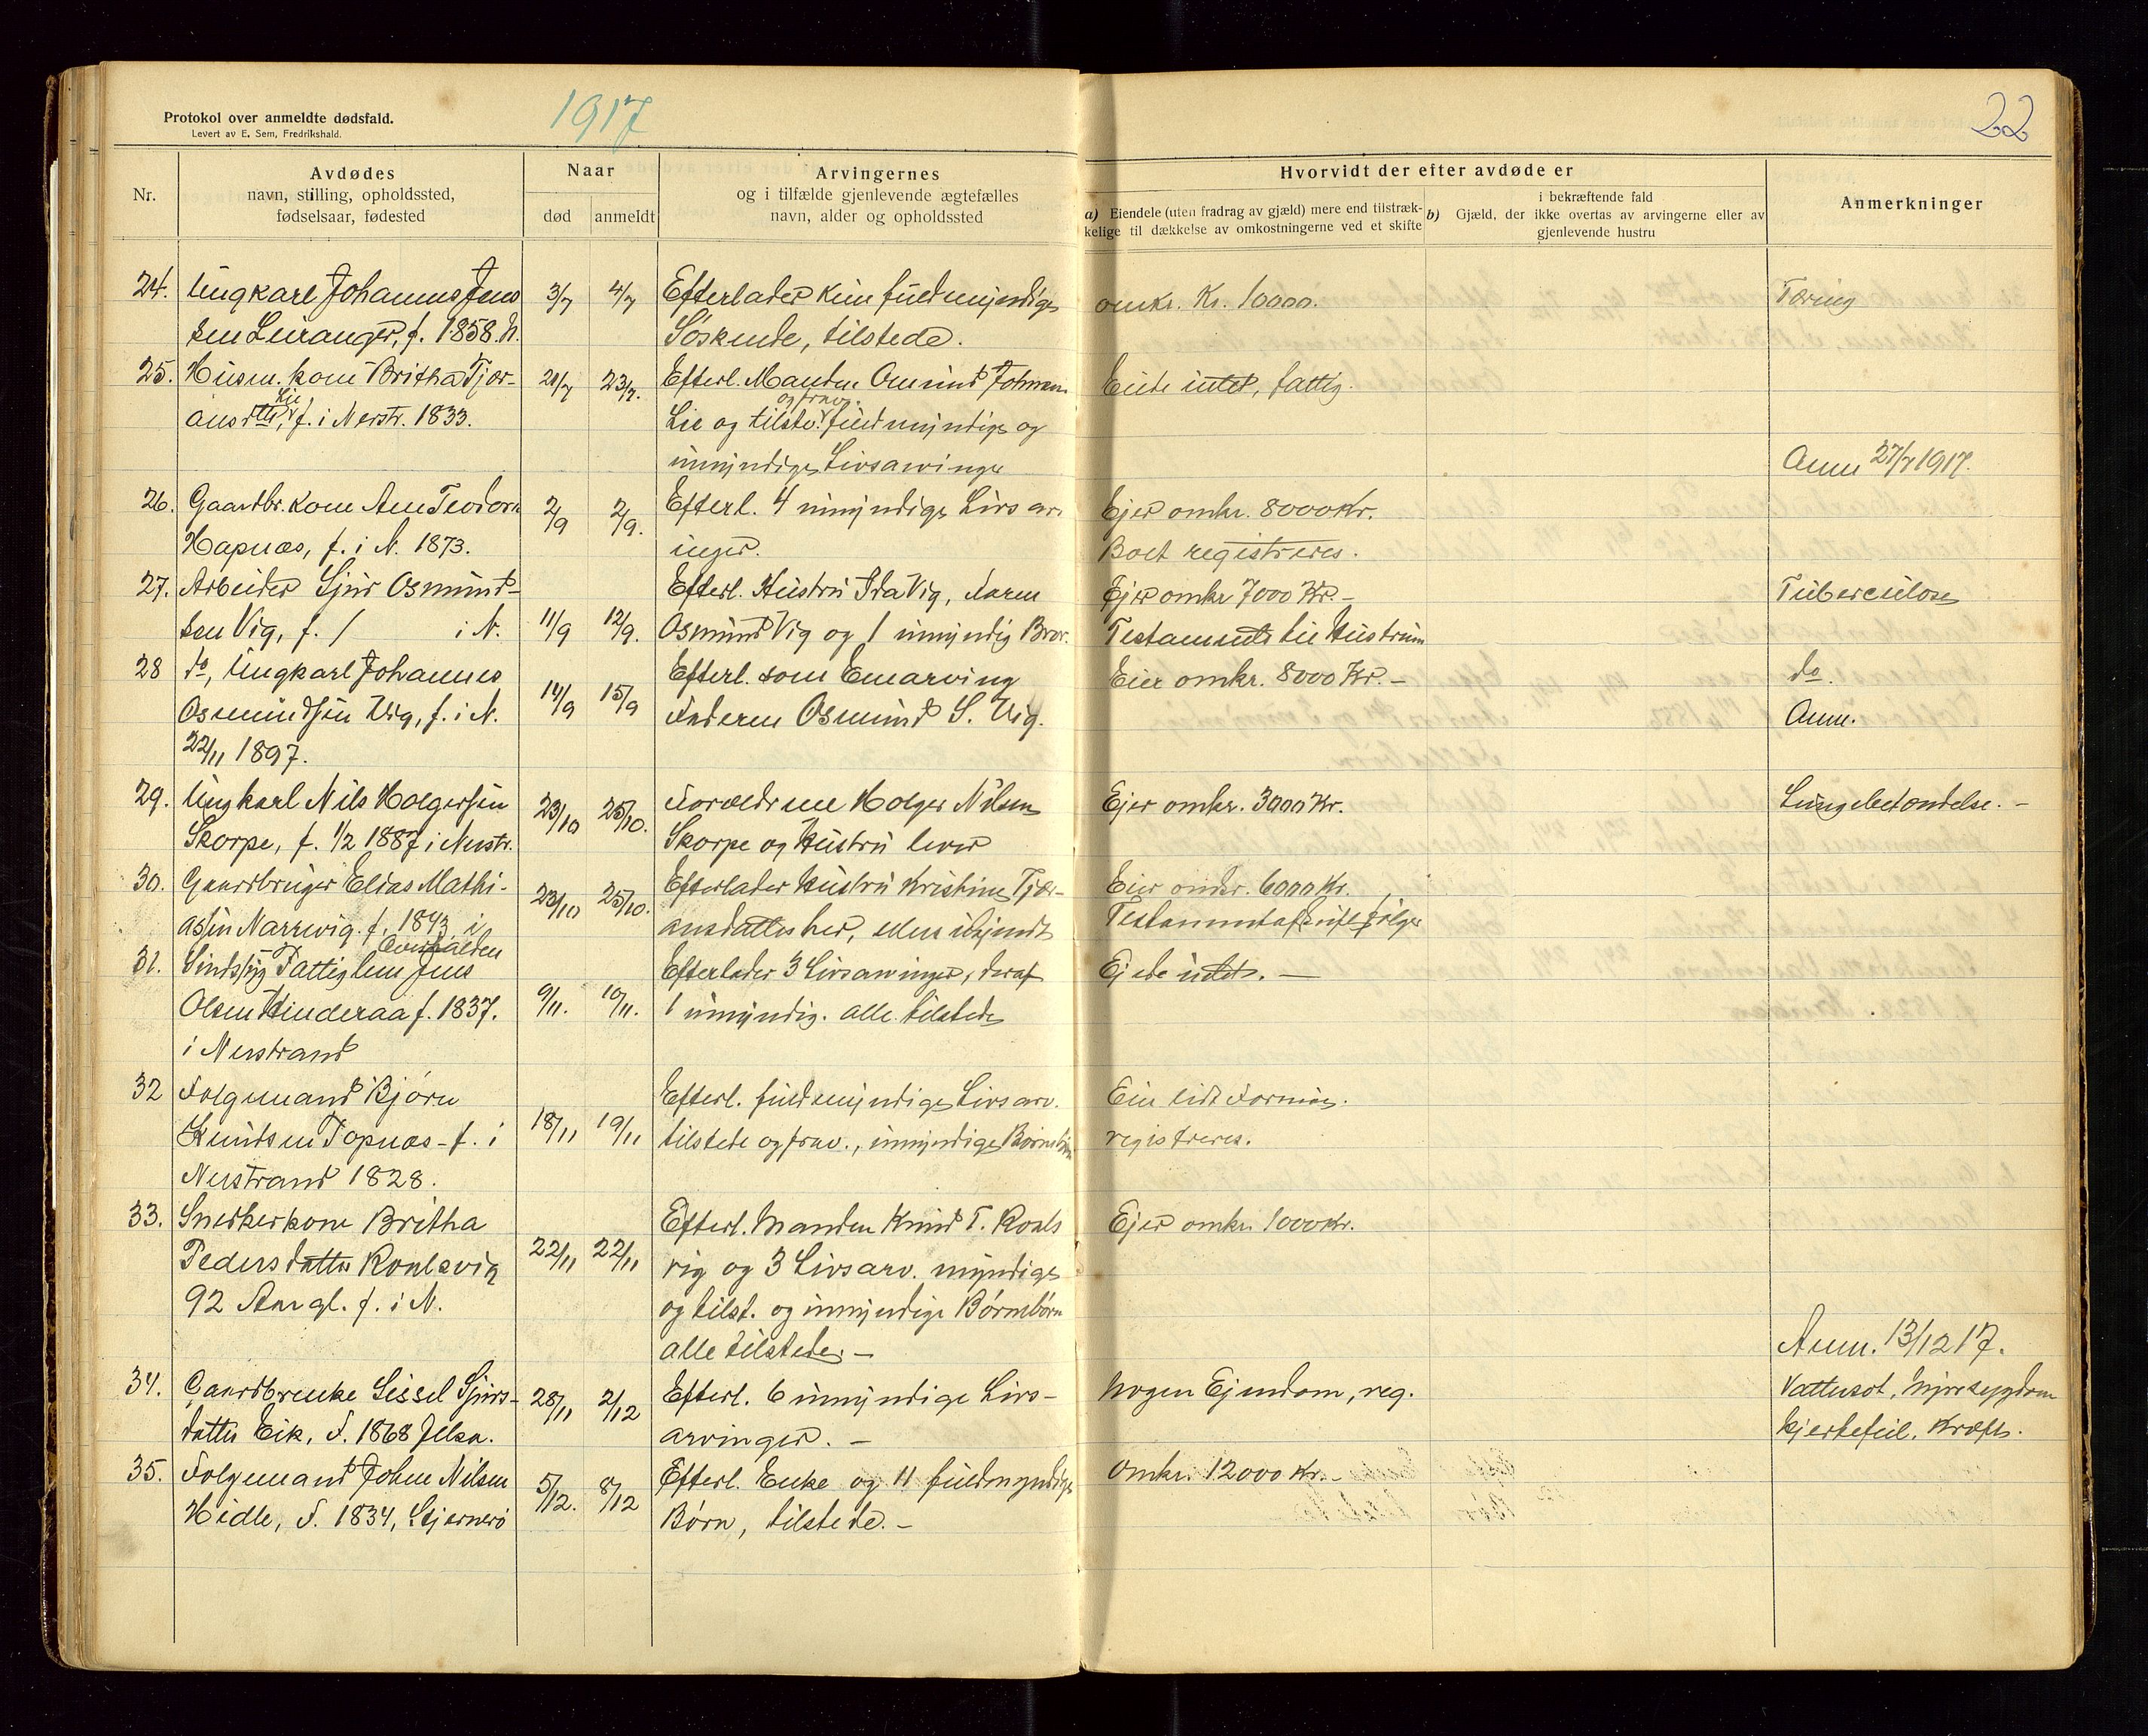 Protokol over anmeldte dødsfald.
Levert av E. Sem, Fredrikshald.
1917
22
Nr.
Avdødes
navn, stilling, opholdssted,
fødselsaar, fødested
Naar
død
anmeldt
Arvingernes
og i tilfælde gjenlevende ægtefælles
navn, alder og opholdssted
Hvorvidt der efter avdøde er
a) Eiendele (uten fradrag av gjæld) mere end tilstræk-
kelige til dækkelse av omkostningerne ved et skifte
i bekræftende fald
b) Gjæld, der ikke overtas av arvingerne eller av
gjenlevende hustru
Anmerkninger
24. Ungkarl Johannes Jens
sen Leiranger, f. 1858. N.
3/7 4/7
Efterlader kun fuldmyndige
Søskende, tilstede.
omkr. Kr. 10000.
Tæring
25. Husm. kone Britha Tjør-
ansdtr, Lie f. i Nerstr. 1833.
21/7 23/7.
Efterl. Manden Omund Johnsen
Lie og tilste. og frav. fuldmyndige og
umyndige Livsarvinger
Eiede intet, fattig.
Anm 27/7 1917.
26. Gaardbr. kone Ane Teodora
Hapnæs, f. i N. 1873.
2/9 2/9.
Efterl. 4 umyndige Livsarv
inger.
Ejer omkr. 8000 Kr.
Boet registreres.
27. Arbeider Sjur Osmund-
sen Vig, f. / i N.
11/9 12/9.
Efterl. Hustru Ida Vig, Faren
Osmund Vig og 1 umyndig Bror.
Ejer omkr 7000 Kr. -
Testamente til Hustruen
Tuberculose
28 do, Ungkarl Johannes
Osmundsen Vig, f. i N.
22/11 1897.
14/9 15/9
Efterl. som Enearving
Faderen Osmund S. Vig.
Eier omkr. 8000 Kr. -
do.
Anm.
29. Ungkarl Nils Holgersen
Skorpe, f. 1/2 1887 i Nerstr.
23/10 25/10.
Forældrene Holger Nilsen
Skorpe og Hustru lever
Ejer omkr. 3000 Kr.
Lungebetændelse. -
30. Gaardbruger Elias Mathi-
assen Narrvig. f. 1843 i
23/10 25/10.
Efterlader Hustru Kristine Tjør-
ansdatter her, ellers ubekjendt
Eier omkr. 6000 Kr.
Testamentafskrift følger
31. Sindssyg Fattiglem Jens
Olsen Hinderaa f. 1837.
i Nerstrand
9/11. 10/11.
Efterlader 3 Livsarvinger, deraf
1 umyndig. alle tilstede
Ejede intet. -
32 Folgemand Bjørn
Knutsen Topnæs - f. i
Nerstrand 1828.
18/11 19/11
Efterl. fuldmyndige Livsarv.
tilstede og frav., umyndige Børnebørn
Eier lidt Formue.
registreres.
33. Snedkerkone Britha
Pedersdatter Roalsvig
92 Aar gl. f. i N.
22/11 22/11
Efterl. Manden Knud T. Roals
vig og 3 Livsarv. myndige
og tilst. og umyndige Børnebørn
alle tilstede. -
Ejer omkr. 1000 Kr.
Anm. 13/12 17.
34. Gaardbrenke Sissel Sjurs-
datter Eik, F. 1868 Jelsa.
28/11 2/12
Efterl. 6 umyndige Livs-
arvinger. -
Nogen Ejendom, reg.
Vattersot, Nyresygdom
Hjertefeil, Kræft.
35. Folgemand John Nilsen
Hidle, F. 1834, Stjernerø
5/12. 8/12
Efterl. Enke og 11 fuldmyndige
Børn, tilstede. -
Omkr. 12000 Kr. -